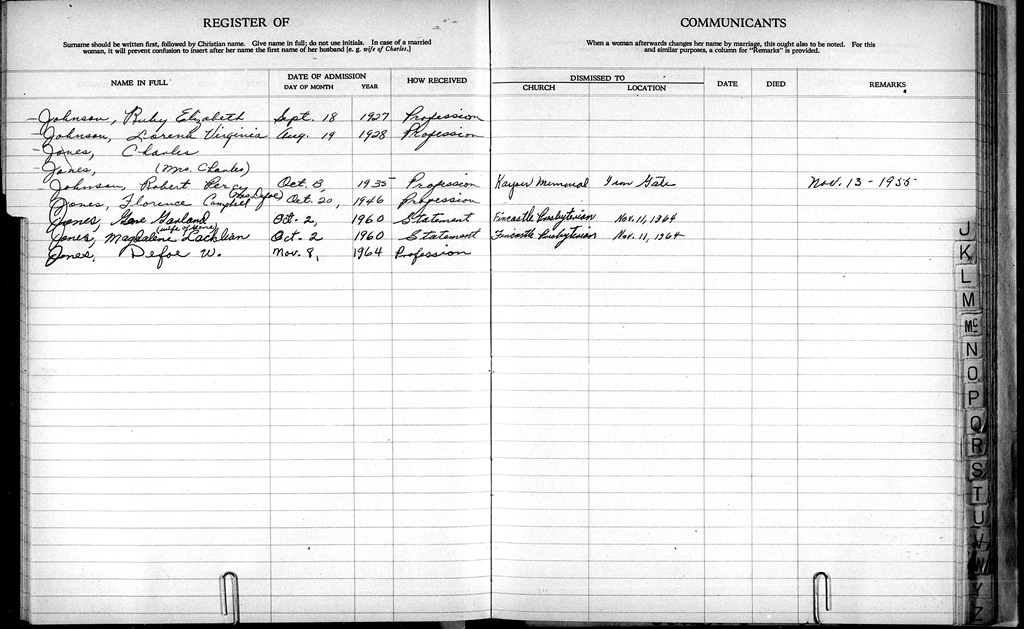 REGISTER OF
Surname should be written first, followed by Christian name. Give name in full; do not use initials. In case of a married
woman, it will prevent confusion to insert after her name the first name of her husband [e. g. wife of Charles.]
NAME IN FULL DATE OF ADMISSION HOW RECEIVED
DAY OF MONTH YEAR
COMMUNICANTS
When a woman afterwards changes her name by marriage, this ought also to be noted. For this
and similar purposes, a column for "Remarks" is provided.
DISMISSED TO DATE DIED REMARKS
CHURCH LOCATION
Johnson, Ruby Elizabeth Sept. 18 1927 Profession
Johnson, Lorena Virginia Aug. 19 1928 Profession
Jones, Charles
Jones, (Mrs. Charles)
Johnson, Robert Percy Oct. 13, 1935 Profession Memorial Gate Nov. 13 - 1955
(Mrs. Defoe)
Jones, Florence Campbell Oct. 20, 1946 Profession
Jones, Gene Garland Oct. 2, 1960 Statement Fincastle Presbyterian Nov. 11, 1964
(wife of Gene)
Jones, Magdaline Lachlian Oct. 2 1960 Statement Fincastle Presbyterian Nov. 11, 1964
Jones, Defoe W. Nov. 8, 1964 Profession
J
K
L
M
Mc
N
O
P
Q
R
S
T
U
V
W
Y
Z